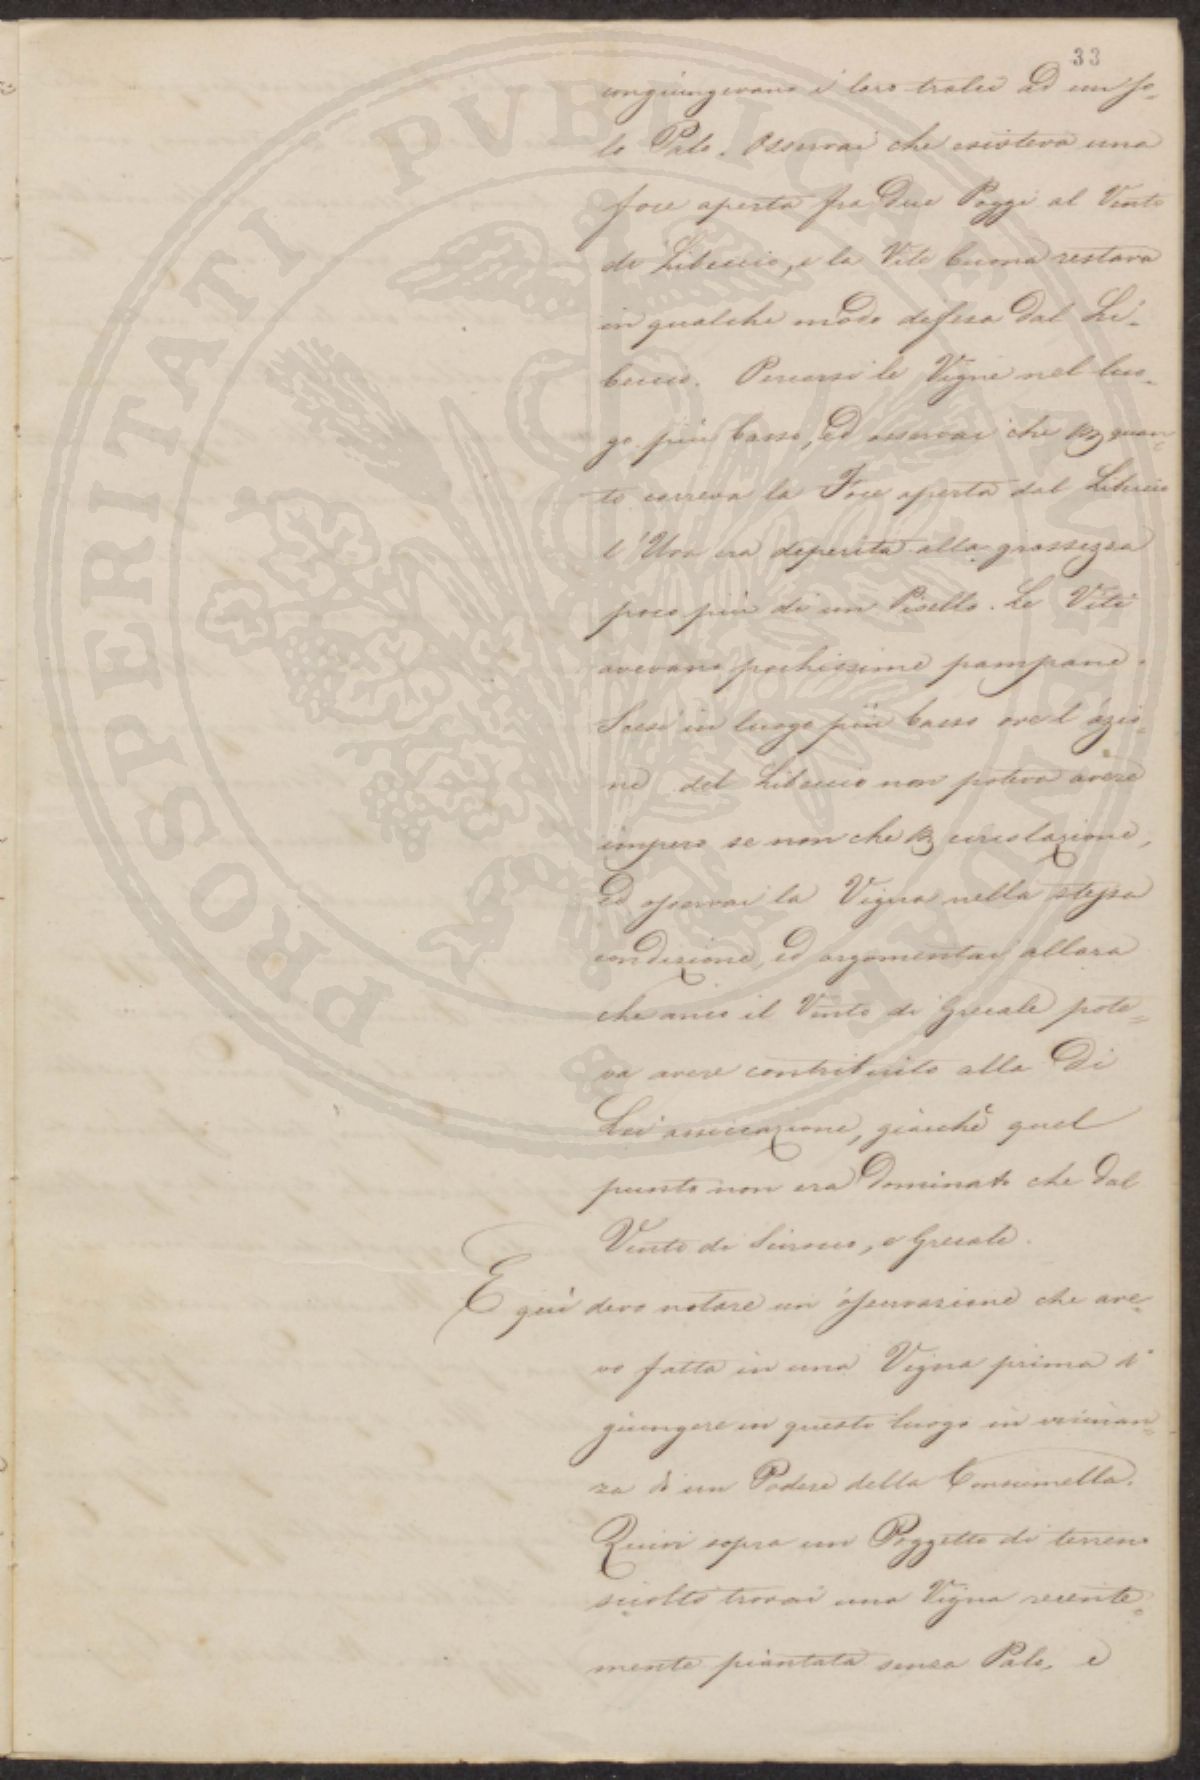 33
congiungevano i loro tralci ad un so-
lo Palo. Osservai che esisteva una
foce aperta fra due Poggi al Vento
di Libeccio, e la Vite buona restava
in qualche modo difesa dal Li-
beccio. Percorsi le Vigne nel luo-
go più basso, ed osservai che p quan-
to correva la Foce aperta dal Libeccio
l'Uva era deperita alla grossezza
poco più di un Pisello. Le Viti
avevano pochissime pampane.
Scesi in luogo più basso ove l'azio-
ne del Libeccio non poteva avere
impero se non che p circolazione,
ed osservai la Vigna nella stessa
condizione, ed argomentai allora
che anco il Vento di Grecale pote-
va avere contribuito alla di
Lei essiccazione, giacchè quel
punto non era dominato che dal
Vento di Scirocco, e Grecale.
E quì devo notare un'osservazione che ave-
vo fatta in una Vigna prima di
giungere in questo luogo in vicinan-
za di un Podere della
Quivi sopra un Poggetto di terreno
sciolto trovai una Vigna recente-
mente piantata senza Palo, e
PROSPERITATI PVBLICAE AVGENDAE